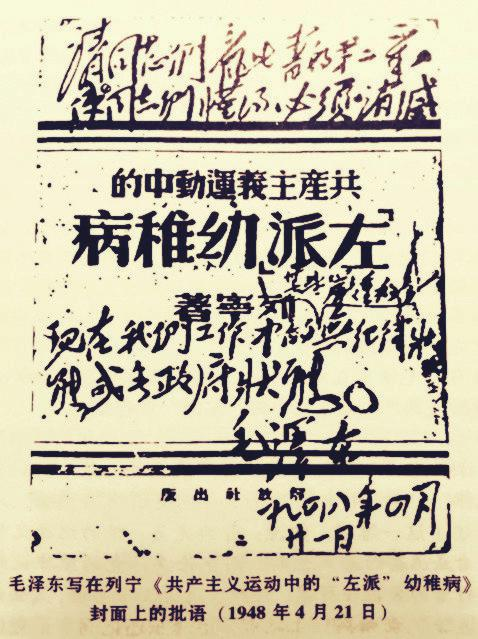 请同志们看此书的第二章，
使同志们懂得，必须消滅
共產主義運動中的
「左派」幼稚病
某些嚴重的
列寧著
现在我们工作中的無纪律狀
態或無政府狀態。
毛澤东
解放社出版
一九四八年四月
廿一日
毛泽东写在列宁《共产主义运动中的“左派”幼稚病》
封面上的批语（1948年4月21日）